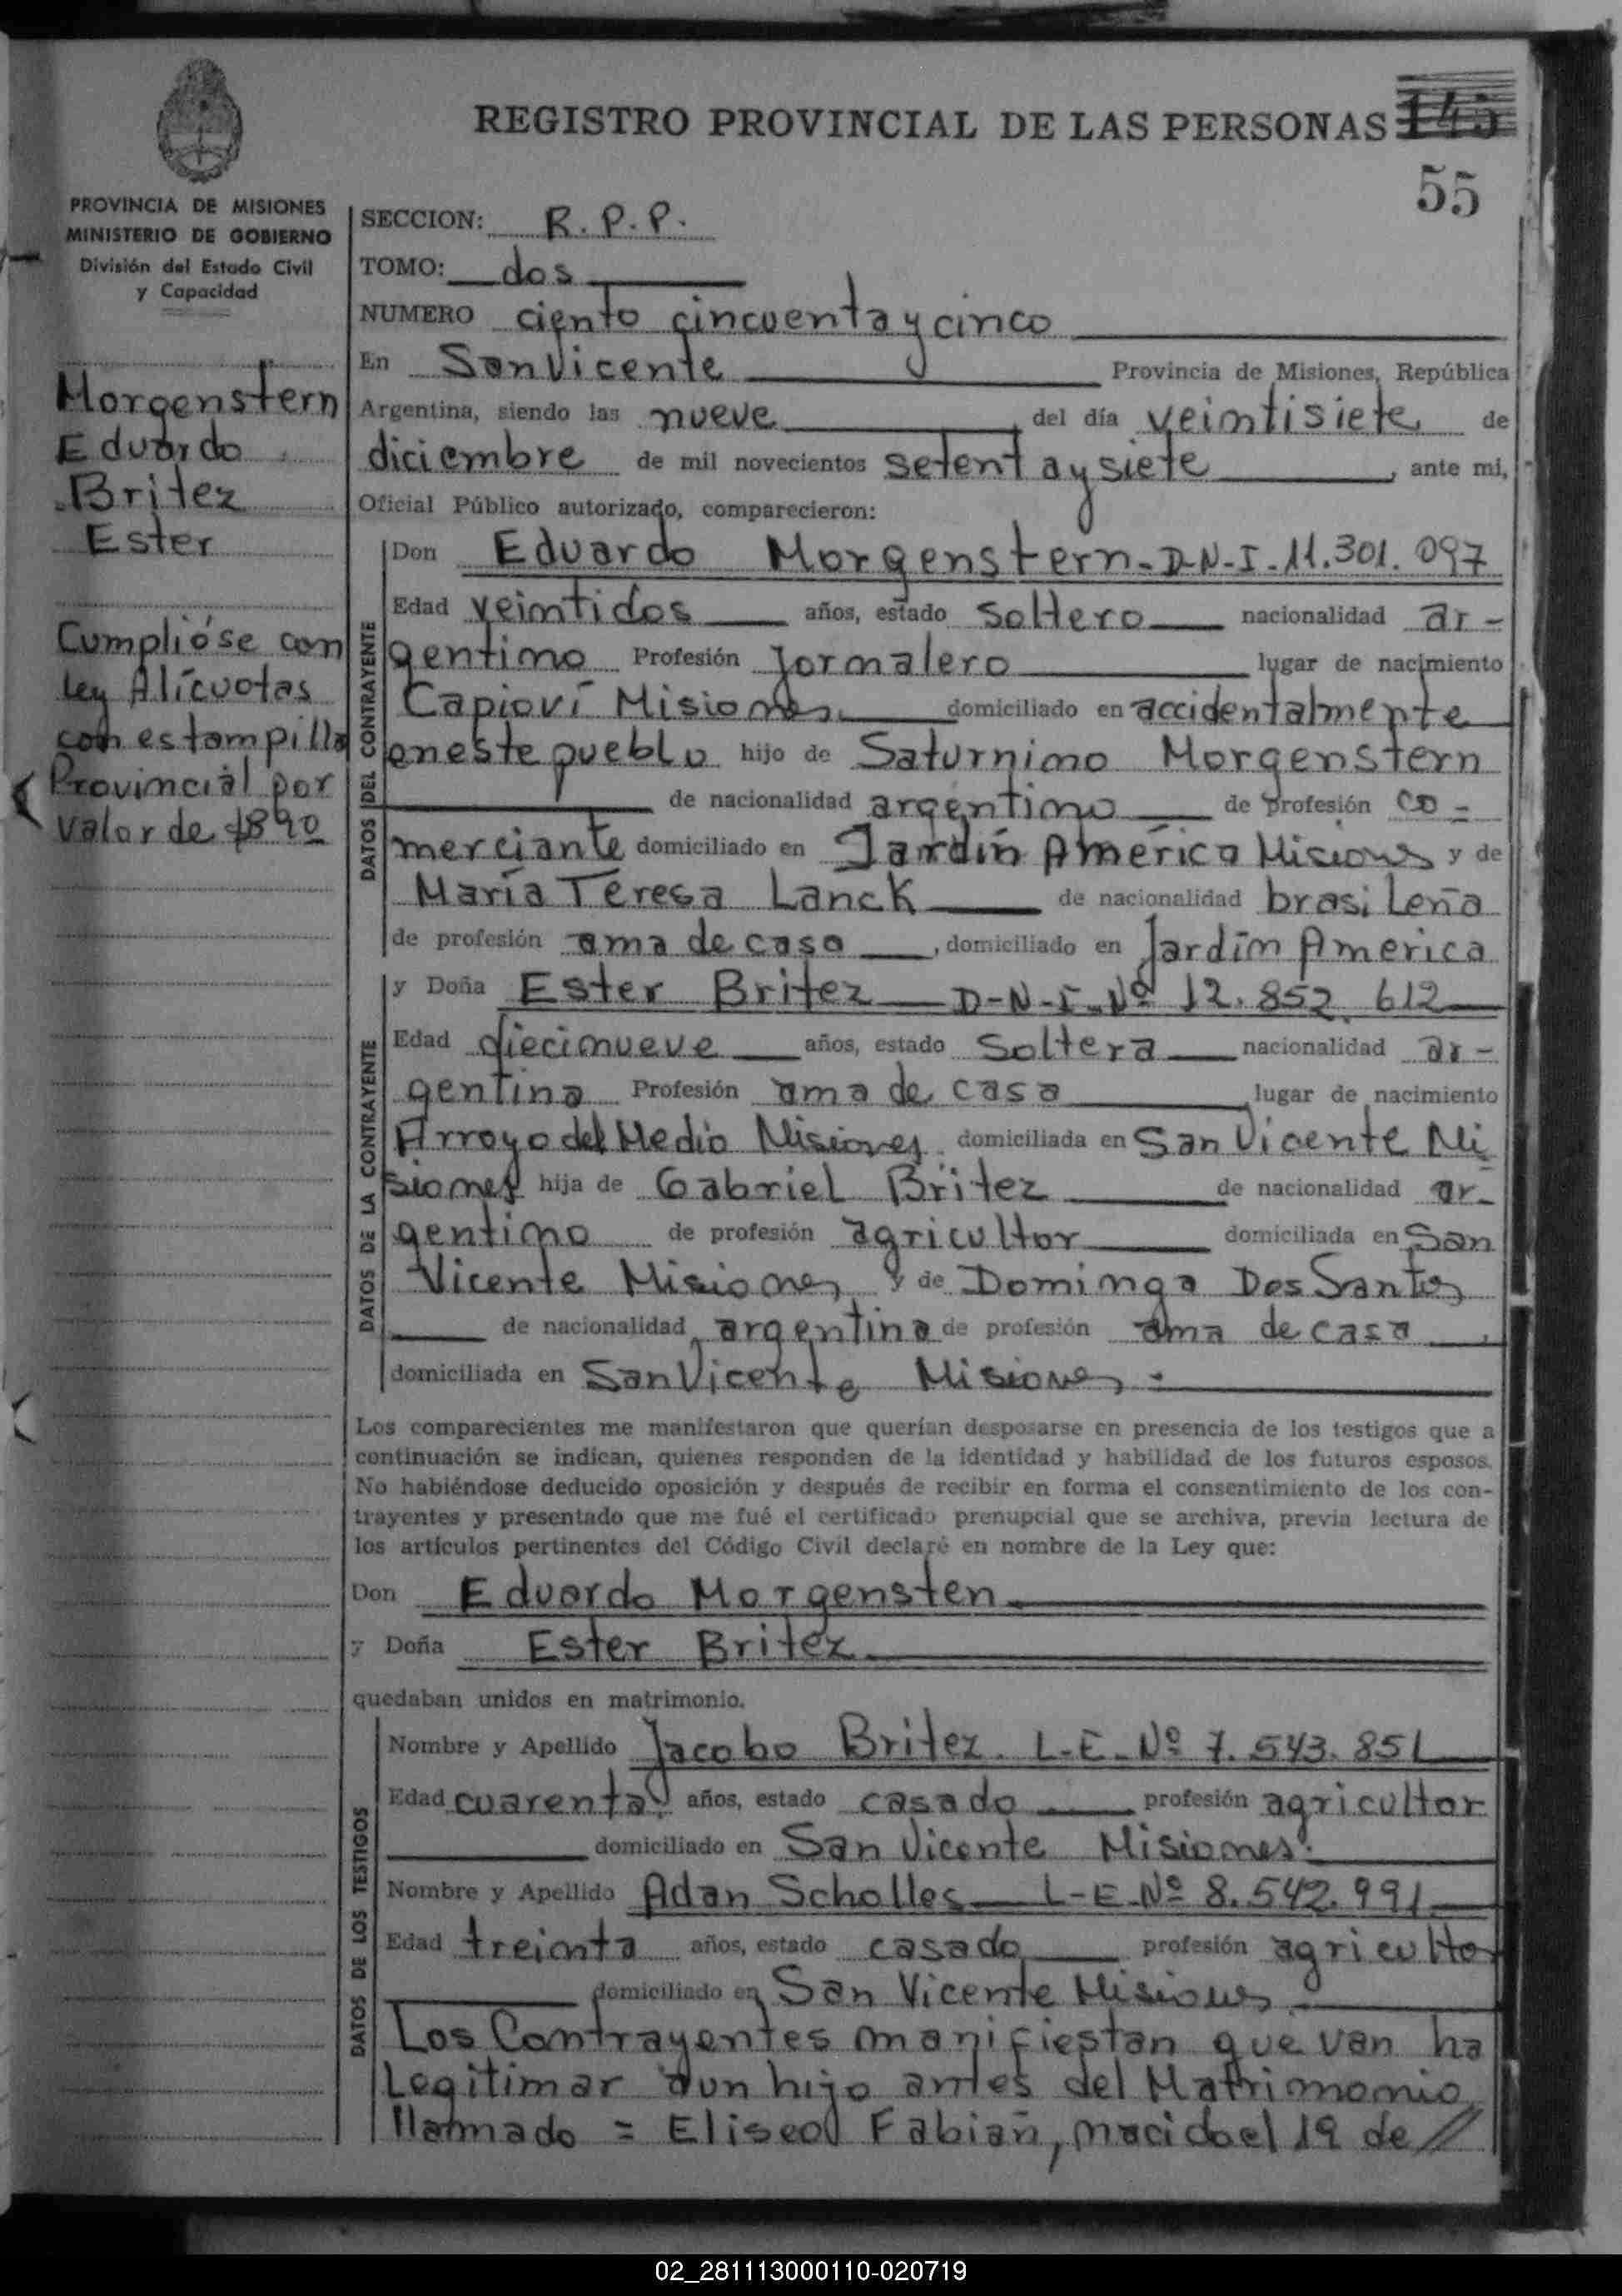 REGISTRO PROVINCIAL DE LAS PERSONAS 145
55
PROVINCIA DE MISIONES
MINISTERIO DE GOBIERNO
División del Estado Civil
y Capacidad
Morgenstern
Eduardo
Britez
Ester
Cumplióse con
Ley Alícuotas
con estampilla
Provincial por
valor de $890
SECCION: R. P. P.
TOMO: dos
NUMERO ciento cincuenta y cinco
En San Vicente Provincia de Misiones, República
Argentina, siendo las nueve del día veintisiete de
diciembre de mil novecientos setenta y siete, ante mi,
Oficial Público autorizado, comparecieron:
DATOS DEL CONTRAYENTE
Don Eduardo Morgenstern - D-N-I - 11.301.097
Edad veintidos años, estado soltero nacionalidad ar-
gentino Profesión Jornalero lugar de nacimiento
Capioví Misiones domiciliado en accidentalmente
en este pueblo hijo de Saturnino Morgenstern
de nacionalidad argentino de profesión co-
merciante domiciliado en Jardín América Misiones y de
María Teresa Lanck de nacionalidad brasileña
de profesión ama de casa, domiciliado en Jardín America
DATOS DE LA CONTRAYENTE
y Doña Ester Britez D-N-I-Nº 12.852.612
Edad diecinueve años, estado Soltera nacionalidad ar-
gentina Profesión ama de casa lugar de nacimiento
Arroyo del Medio Misiones domiciliada en San Vicente Mi
siones hija de Gabriel Britez de nacionalidad ar-
gentino de profesión agricultor domiciliada en San
Vicente Misiones y de Dominga Dos Santos
de nacionalidad argentina de profesión ama de casa,
domiciliada en San Vicente Misiones.
Los comparecientes me manifestaron que querían desposarse en presencia de los testigos que a
continuación se indican, quienes responden de la identidad y habilidad de los futuros esposos.
No habiéndose deducido oposición y después de recibir en forma el consentimiento de los con-
trayentes y presentado que me fué el certificado prenupcial que se archiva, previa lectura de
los artículos pertinentes del Código Civil declaré en nombre de la Ley que:
Don Eduardo Morgensten
y Doña Ester Britez
quedaban unidos en matrimonio.
DATOS DE LOS TESTIGOS
Nombre y Apellido Jacobo Britez. L-E-Nº 7.543.851
Edad cuarenta años, estado casado profesión agricultor
domiciliado en San Vicente Misiones.
Nombre y Apellido Adan Scholles L-E-Nº 8.542.991
Edad treinta años, estado casado profesión agricultor
domiciliado en San Vicente Misiones
Los Contrayentes manifiestan que van ha
Legitimar a un hijo antes del Matrimonio
llamado = Eliseo Fabian, nacido el 19 de //
02_281113000110-020719